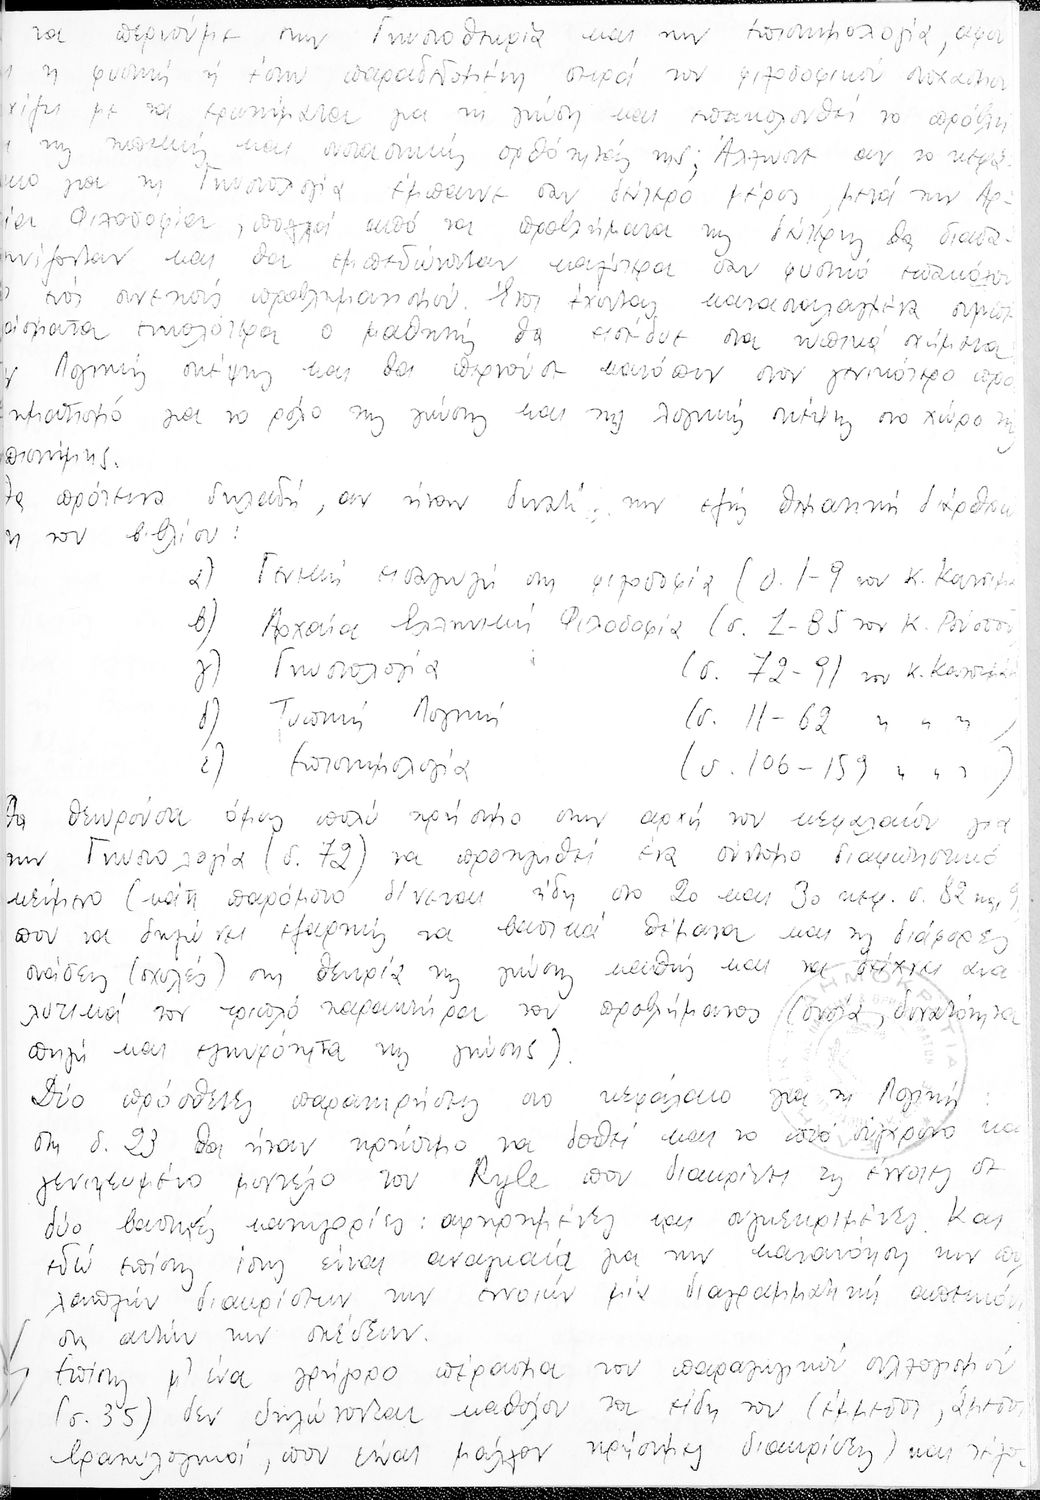 να περνούμε στην Γνωσιοθεωρία και την επιστημολογία, αφού
η φυσική ή έστω παραδεδομένη σειρά του φιλοσοφικού στοχασμού
με τα ερωτήματα για τη γνώση και επακολουθεί το πρόβλη
της τυπικής και ουσιαστικής ορθότητάς της; Άλλωστε αν το κεφά-
λαιο για τη Γνωσιολογία έμπαινε σαν δεύτερο μέρος, μετά την Αρ-
χαία Φιλοσοφία, πολλά από τα προβλήματα της δεύτερης θα διασα-
φηνίζονταν και θα εμπεδώνονταν καλύτερα σαν φυσικό επακόλου
ενός συνεχούς προβληματισμού. Έτσι έχοντας κατασταλαγμένα συμπε
ράσματα ευκολότερα ο μαθητής θα εισέδυε στα τυπικά σχήματα
Λογικής σκέψης και θα περνούσε κατόπιν στον γενικότερο προ
βληματισμό για το ρόλο της γνώσης και της λογικής σκέψης στο χώρο της
επιστήμης.
Θα πρότεινα δηλαδή, αν ήταν δυνατό, την εξής θεματική διάρθρω
ση του βιβλίου:
α) Γενική εισαγωγή στη φιλοσοφία (σ. 1-9 του κ.
β) Αρχαία Ελληνική Φιλοσοφία (σ. 1-85 του κ.
γ) Γνωσιολογία (σ. 72-91 του κ.
δ) Τυπική Λογική (σ. 11-62 " " " )
ε) Επιστημολογία (σ. 106-159 " " " )
Θα θεωρούσα όμως πολύ χρήσιμο στην αρχή του κεφαλαίου για
την Γνωσιολογία (σ. 72) να προταχθεί ένα σύντομο διαφωτιστικό
κείμενο (κάτι παρόμοιο δίνεται ήδη στο 2ο και 3ο κεφ. σ. 82 και 9
που να δηλώνει εξαρχής τα βασικά θέματα και τις διάφορες
στάσεις (σχολές) στη θεωρία της γνώσης καθώς και να δείχνει ανα
λυτικά τον τριπλό χαρακτήρα του προβλήματος (ουσία, δυνατότητα
πηγή και εγκυρότητα της γνώσης).
Δύο πρόσθετες παρατηρήσεις στο κεφάλαιο για τη Λογική:
στη σ. 23 θα ήταν χρήσιμο να δοθεί και το πιο σύγχρονο και
γενικευμένο μοντέλο του Ryle που διακρίνει τις έννοιες σε
δύο βασικές κατηγορίες: αφηρημένες και συγκεκριμένες. Και
εδώ επίσης ίσως είναι αναγκαία για την κατανόηση των πολ
λαπλών διακρίσεων των εννοιών μία διαγραμματική απεικόνι
ση αυτών των σχέσεων.
Επίσης μ' ένα γρήγορο πέρασμα του παραγωγικού συλλογισμού
(σ. 35) δεν δηλώνονται καθόλου τα είδη του (έμμεσοι, άμεσοι
βραχυλογικοί, που είναι μάλλον χρήσιμες διακρίσεις) και
ΔΗΜΟΚΡΑΤΙΑ